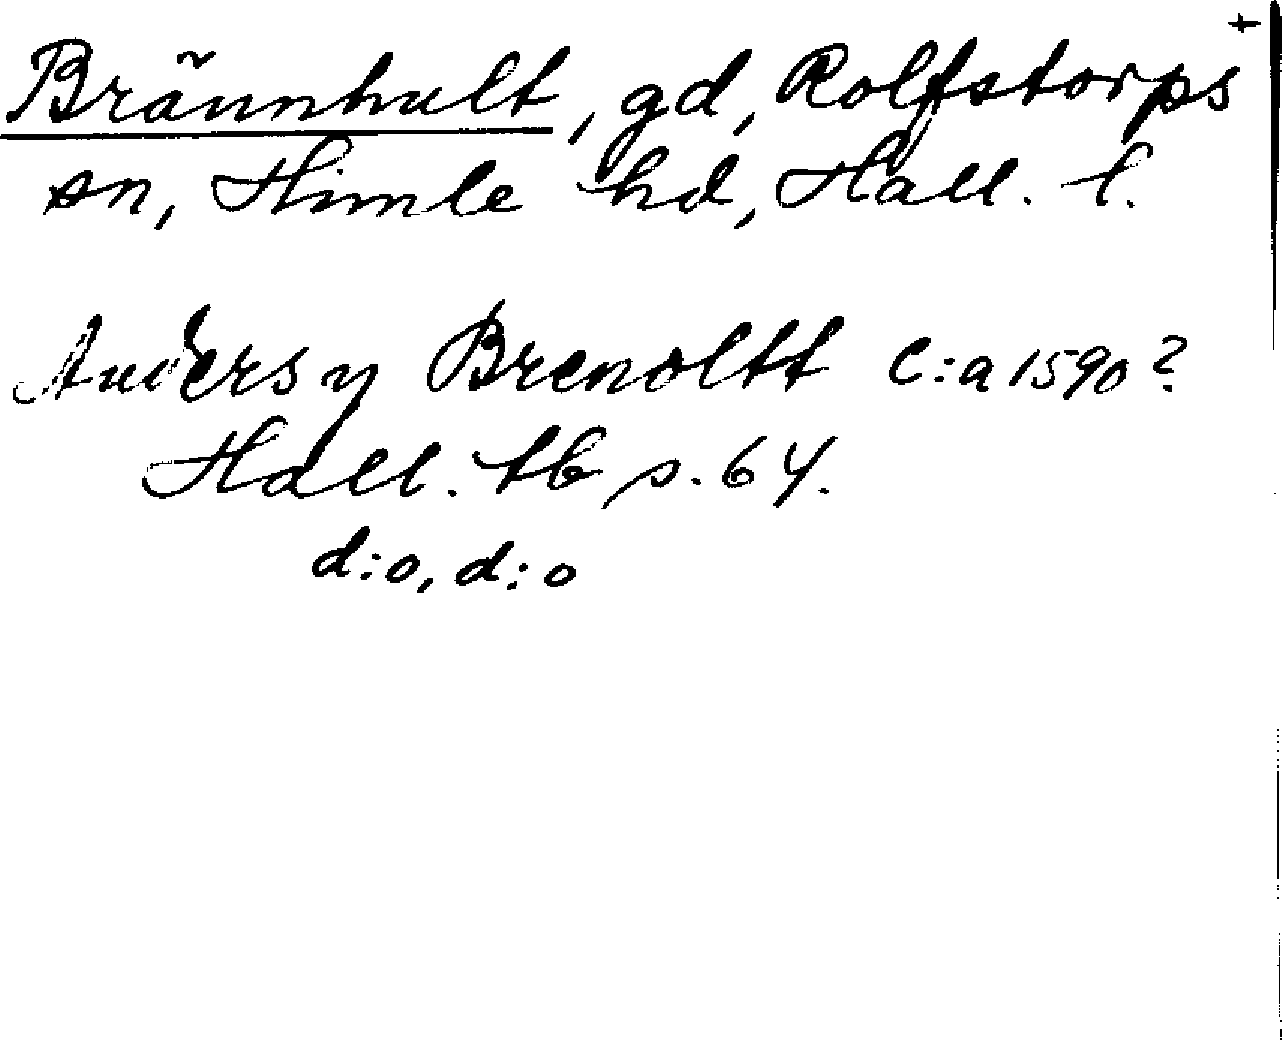 +
Brännhult, gd, Rolfstorps
sn, Himle hd, Hall. l.
Anders y Brenoltt C:a 1590?
Hall. tb s. 64.
d:o, d:o